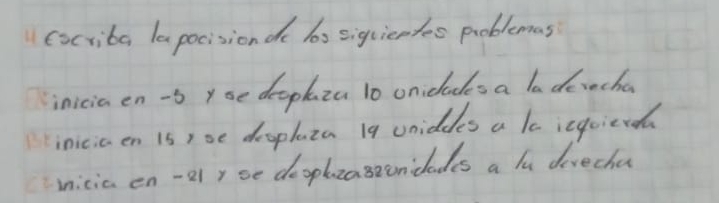 4 escriba la pocision de los siguientes problemas:
A inicia en -5 y se desplaza 10 unidades a la derecha
B inicia en 15 y se desplaza 19 unidades a la izquierda
C inicia en -21 y se desplaza 32 unidades a la derecha